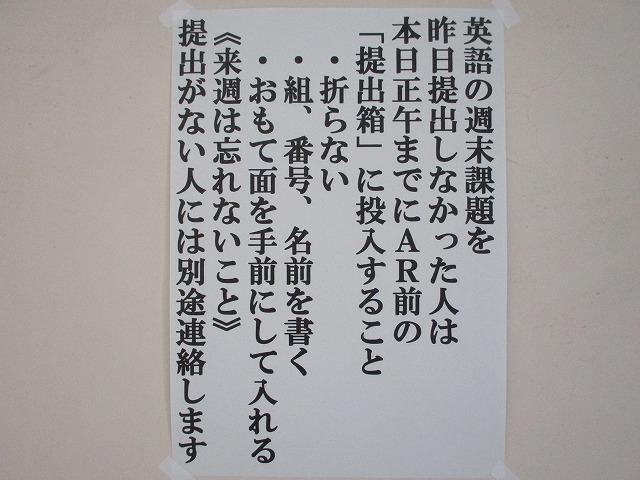 英語の週末課題を
昨日提出しなかった人は
本日正午までにＡＲ前の
「提出箱」に投入すること
・折らない
・組、番号、名前を書く
・おもて面を手前にして入れる
《来週は忘れないこと》
提出がない人には別途連絡します